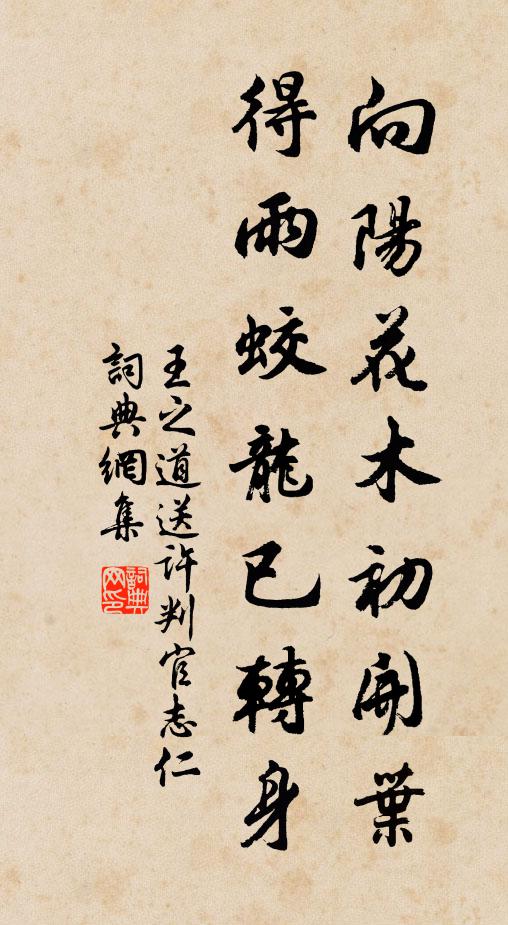 向陽花木初開葉
得雨蛟龍已轉身
王之道送許判官志仁
詞典網集
詞典网印